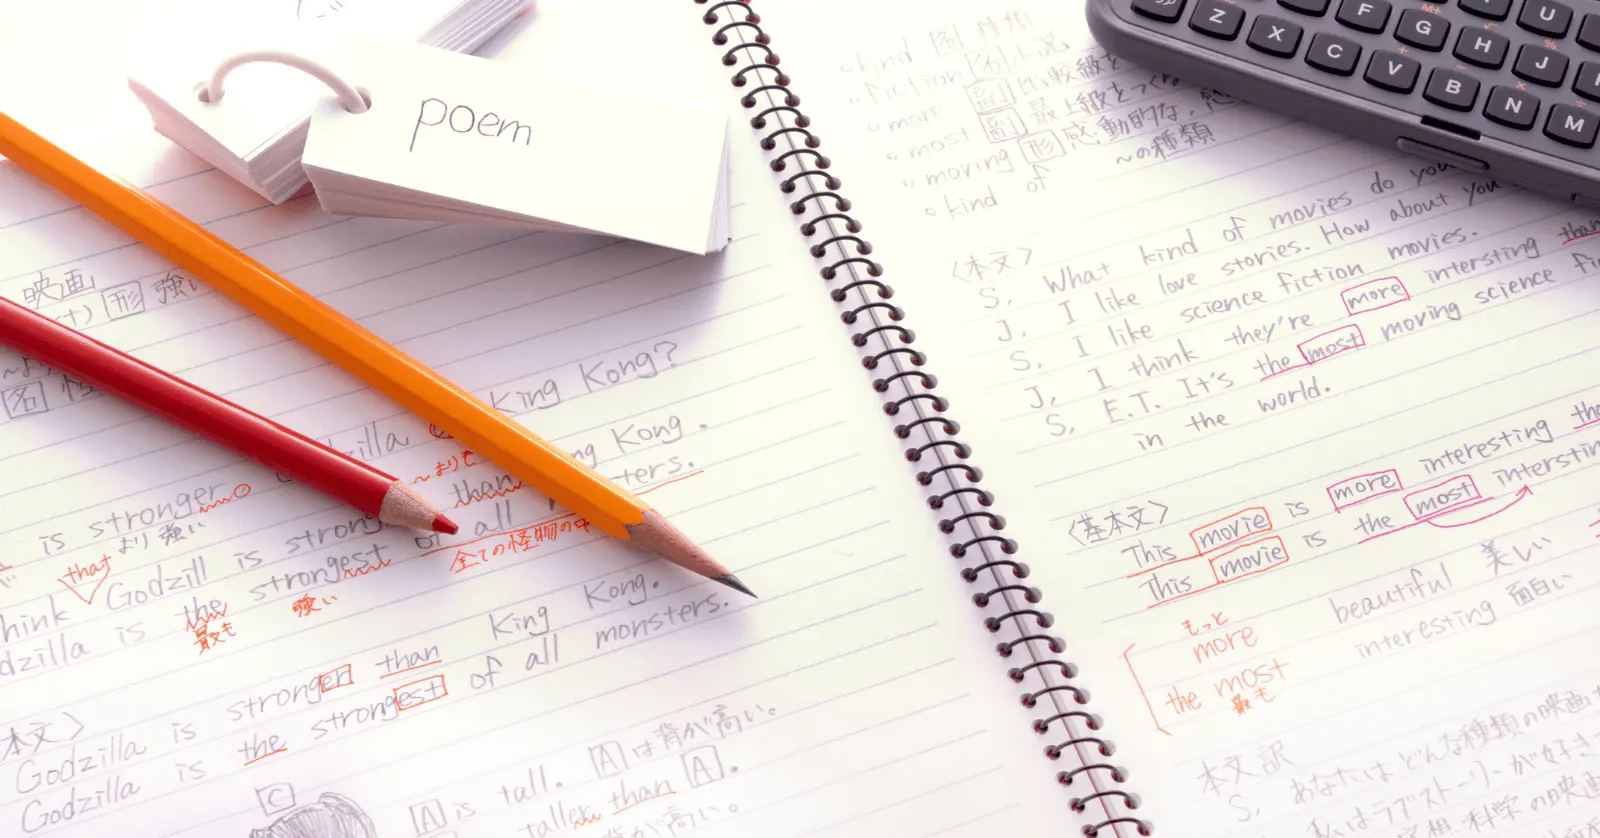 poem
映画
形 強い
King Kong?
Godzilla
Kong.
is stronger
〜よりも
than
より強い
Godzill is
all
全ての怪物の中
that
hink Godzilla is the strongest of
最も
強い
Godzilla is stronger than King Kong.
Godzilla is the strongest of all monsters.
本文〉
C
A is tall. A は背が高い。
than A.
背が高い。
kind 名 種類
fiction 名 小説
more 副 比較級を
most 副 最上級をつくる
moving 形 感動的な, 感
kind of 〜の種類
〈本文〉
S, What kind of movies do you
J, I like love stories. How about you
S, I like science fiction movies.
J, I think they're more intersting than
S, E.T. It's the most moving science fi
in the world.
〈基本文〉
This movie is more interesting tha
This movie is the most interstin
もっと
more beautiful 美しい
the most interesting 面白い
最も
本文訳
S, あなたはどんな種類の映画
私はラブストーリーが好き
科学の映画
Z X C V B N M
F G H J
U